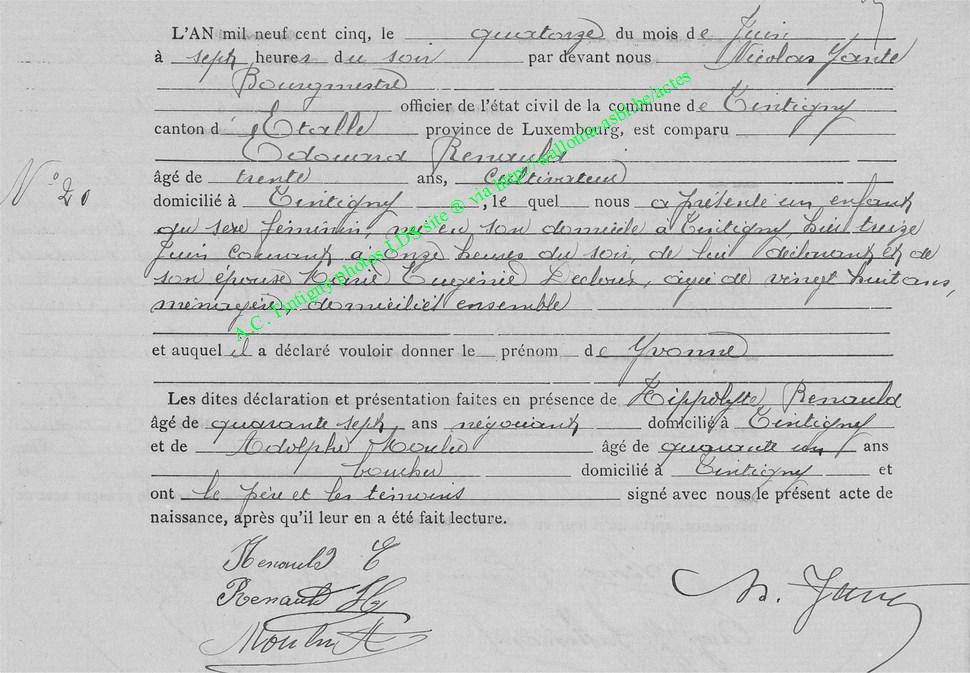 L'AN mil neuf cent cinq, le quatorze du mois de Juin
à sept heures du soir par devant nous Nicolas Yante
Bourgmestre
officier de l'état civil de la commune de Tintigny
canton d'Etalle province de Luxembourg, est comparu
Edouard Renauld
N° 20
âgé de trente ans, cultivateur
domicilié à Tintigny, le quel nous a présenté un enfant
du sexe féminin, né en son domicile à Tintigny, hier treize
Juin courant à onze heures du soir, de lui déclarant et de
son épouse Marie Eugénie, âgée de vingt huit ans,
ménagère, domiciliés ensemble
et auquel il a déclaré vouloir donner le prénom de Yvonne
Les dites déclaration et présentation faites en présence de Hippolyte Renauld
âgé de quarante sept ans négociant domicilié à Tintigny
et de Adolphe âgé de quarante un ans
boucher domicilié à Tintigny et
ont le père et les témoins signé avec nous le présent acte de
naissance, après qu'il leur en a été fait lecture.
Renauld E
Renauld Hy
N. Yante
A.C. Tintigny photos LDS site ® via http://wallonia-asbl.be/actes